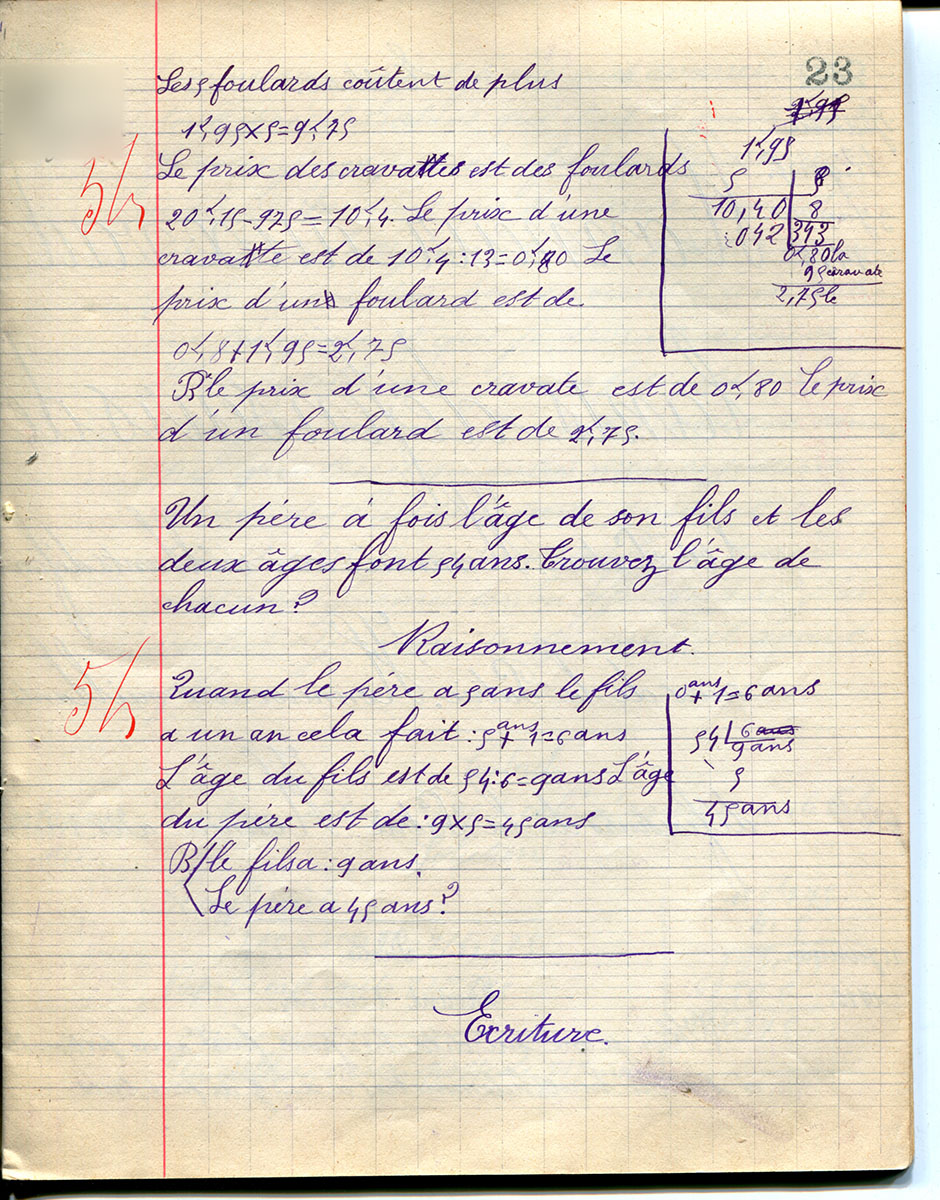 23
Les 5 foulards coûtent de plus
1f,95x5=9f,75
5h
Le prix des cravattes est des foulards
20f,15-975=10f,4. Le prix d'une
cravatte est de 10f,4:13=0f,80 Le
prix d'un foulard est de
0f,8+1f,95=2f,75
R le prix d'une cravate est de 0f,80 le prix
d'un foulard est de 2f,75.
1f,95
1f,95
5
10,40 8
042
0f,80 la
95 cravate
2,75 le
Un père à fois l'âge de son fils et les
deux âges font 54 ans. Trouvez l'âge de
chacun?
Raisonnement.
5h
Quand le père a 5 ans le fils
a un an cela fait : 5 ans + 1=6 ans
L'âge du fils est de 54:6=9 ans L'âge
du père est de : 9x5=45 ans
R/ le fils a : 9 ans.
Le père a 45 ans?
ans + 1=6 ans
54 6 ans
9 ans
5
45 ans
Ecriture.